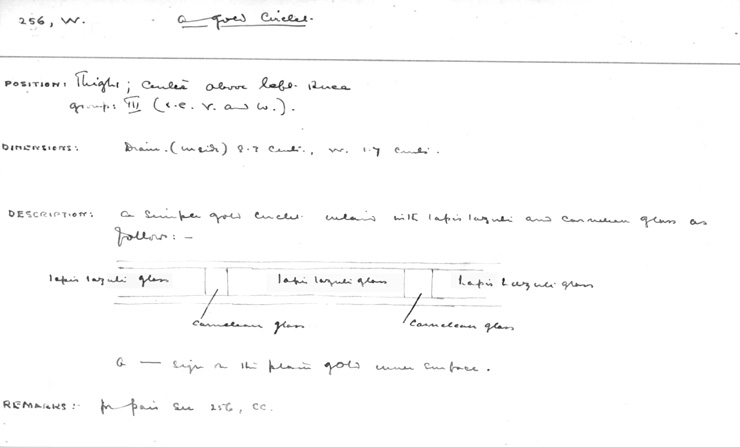 256, W. A gold Circlet.
POSITION: Thighs; Centre above left Knee
group: III (i.e. V. and W.).
DIMENSIONS: Diam. (inside) 8.2 Centi., W. 1.7 Centi.
DESCRIPTION: A simple gold circlet inlaid with lapis lazuli and carnelian glass as
follow: —
lapis lazuli glass lapis lazuli glass Lapis Lazuli glass
Carnelian glass Carnelian glass
A — sign on the plain gold inner surface.
REMARKS: for pair see 256, CC.